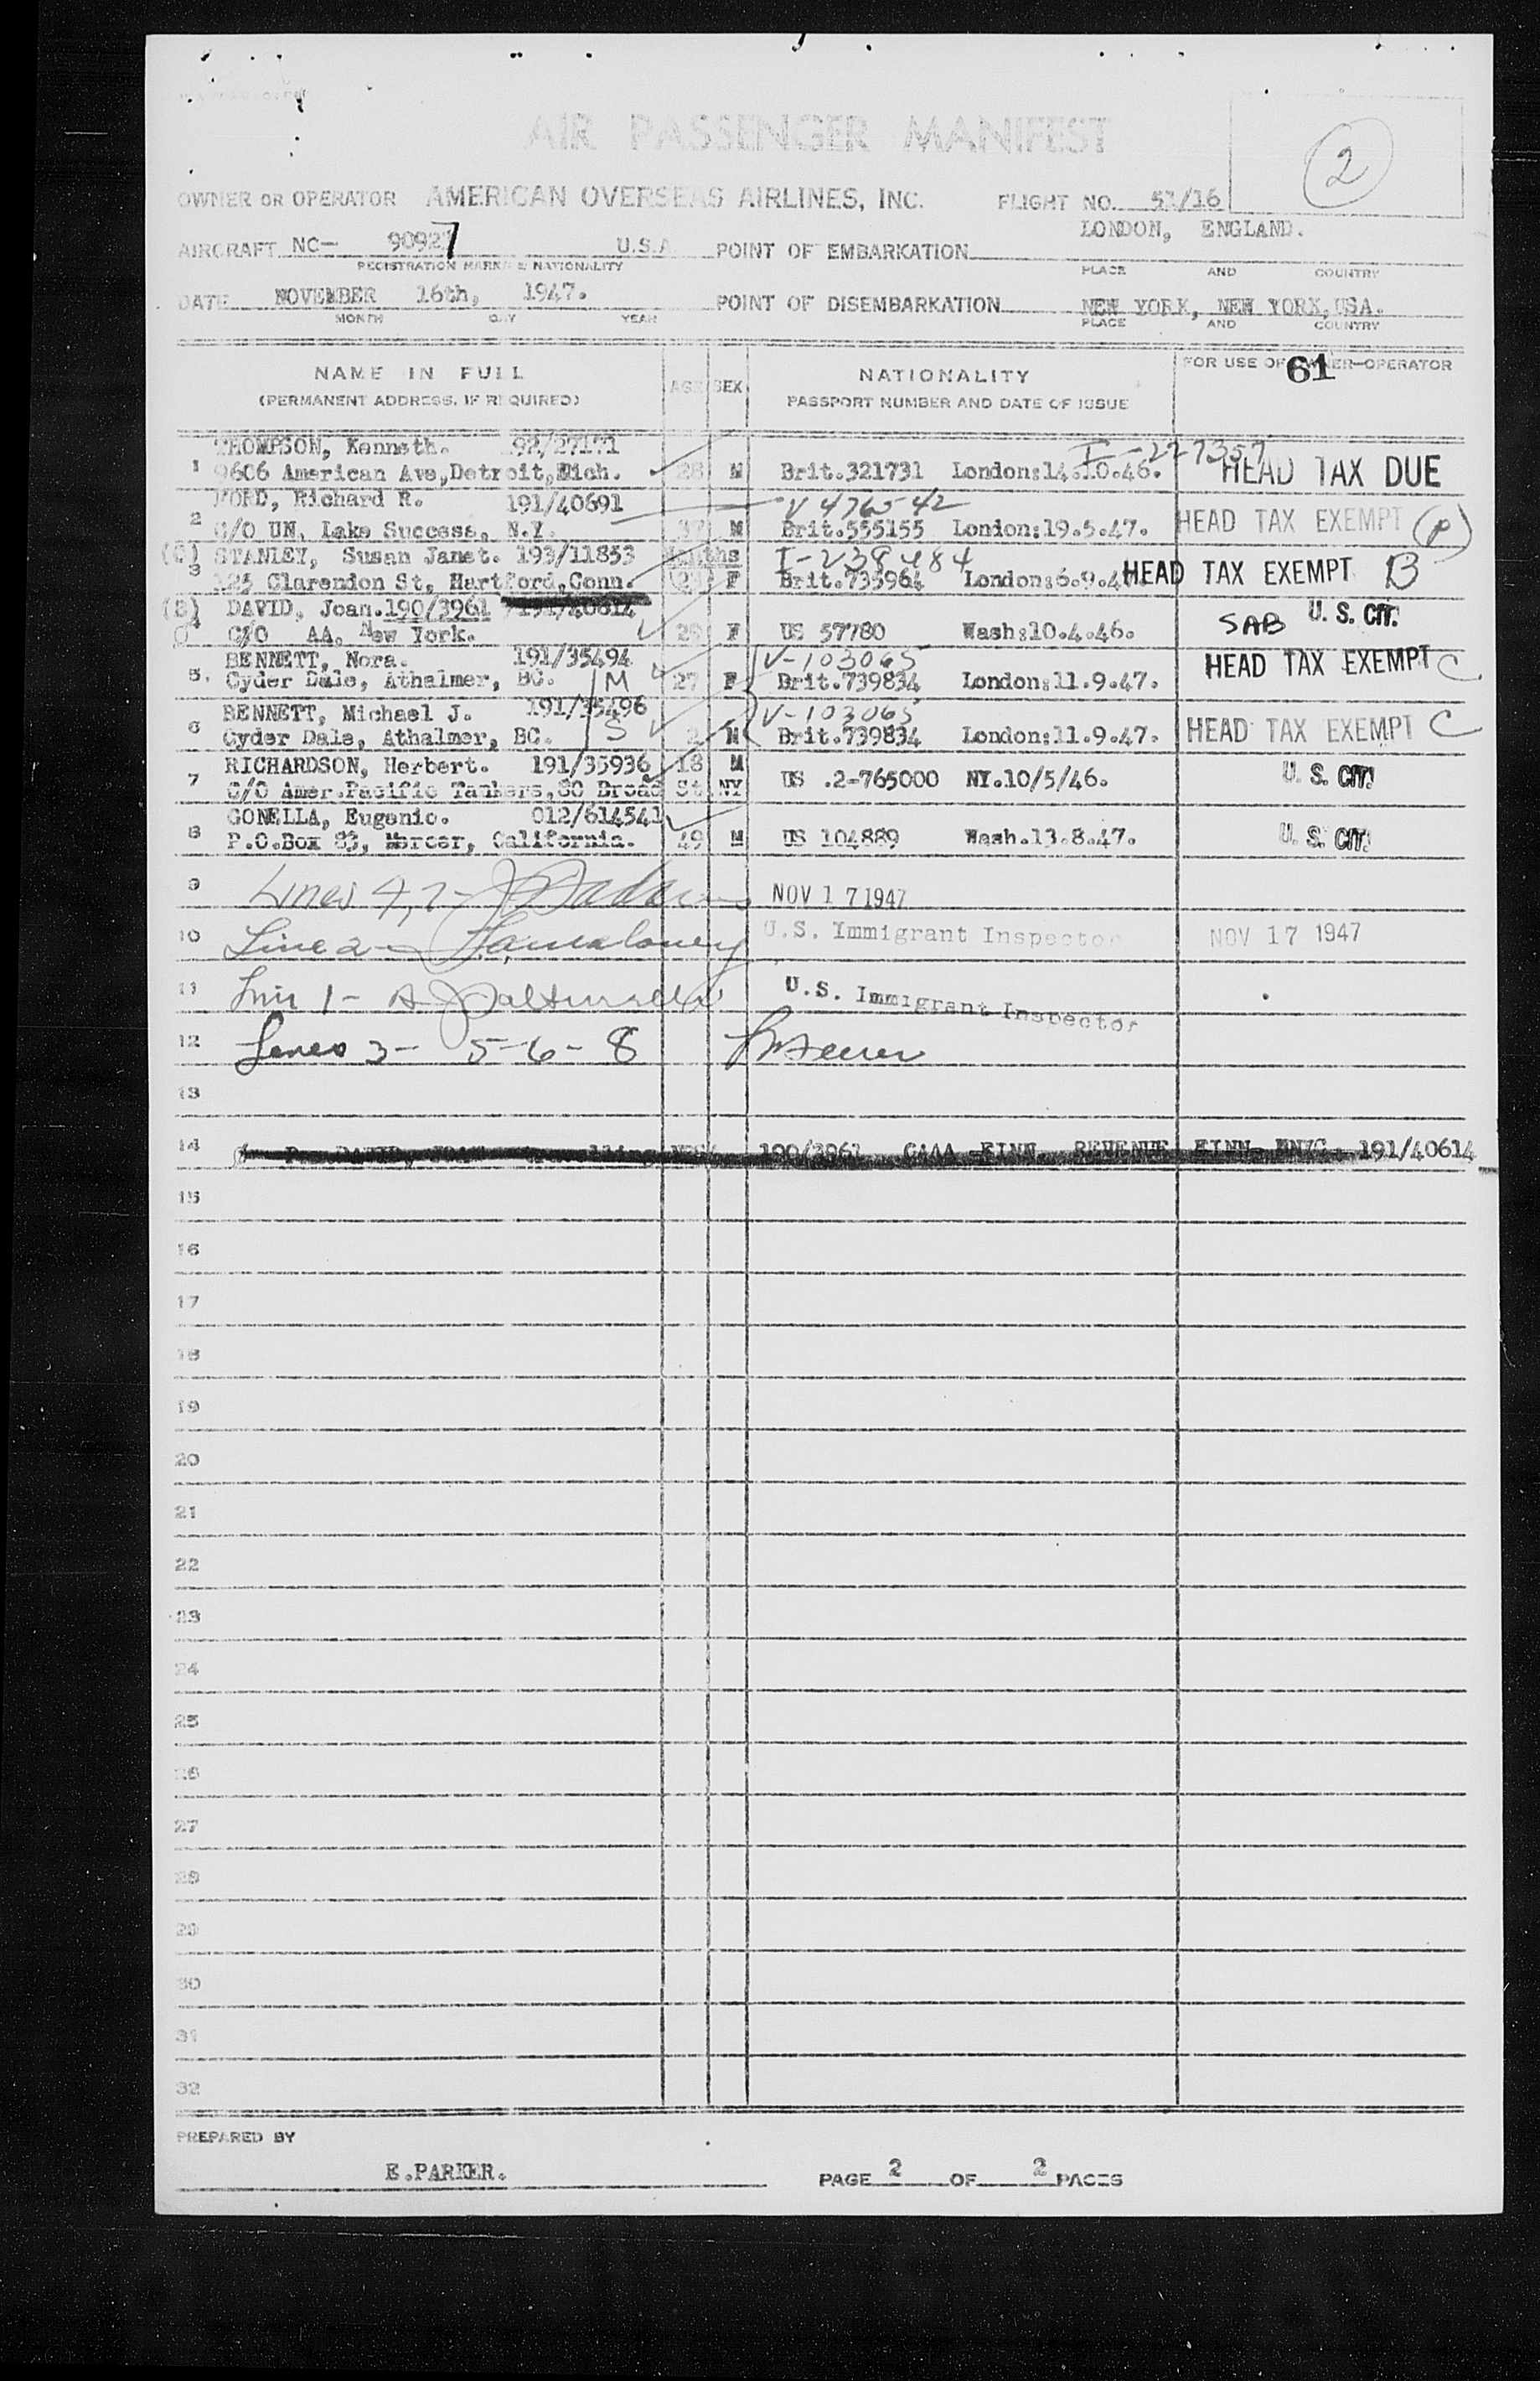 AIR PASSENGER MANIFEST
2
OWNER OR OPERATOR AMERICAN OVERSEAS AIRLINES, INC. FLIGHT NO. 51/16
LONDON, ENGLAND.
AIRCRAFT NC— 90927 U.S.A POINT OF EMBARKATION
REGISTRATION MARKS & NATIONALITY PLACE AND COUNTRY
DATE NOVEMBER 16th, 1947. POINT OF DISEMBARKATION NEW YORK, NEW YORK,USA.
MONTH DAY YEAR PLACE AND COUNTRY
NAME IN FULL AGE SEX NATIONALITY FOR USE OF OWNER-OPERATOR
61
(PERMANENT ADDRESS, IF REQUIRED) PASSPORT NUMBER AND DATE OF ISSUE
THOMPSON, Kenneth. 92/27171 I-227357
1 9606 American Ave,Detroit,Mich. 28 M Brit.321731 London:14.10.46. HEAD TAX DUE
FORD, Richard R. 191/40691 V 476542
2 C/O UN, Lake Success, N.Y. 37 M Brit.555155 London:19.5.47. HEAD TAX EXEMPT (P)
(C) STANLEY, Susan Janet. 193/11853 Mnths I-238484
3 125 Clarendon St, Hartford,Conn. F Brit.735964 London:6.9.47. HEAD TAX EXEMPT B
(S) DAVID, Joan.190/3961 191/40614
4 C/O AA, New York. 29 F US 57780 Wash:10.4.46. SAB U. S. CIT.
BENNETT, Nora. 191/35494 V-103065
5. Cyder Dale, Athalmer, BC. M 27 F Brit.739834 London:11.9.47. HEAD TAX EXEMPT C
BENNETT, Michael J. 191/35496 V-103065
6 Cyder Dale, Athalmer, BC. S 2 M Brit.739834 London:11.9.47. HEAD TAX EXEMPT C
RICHARDSON, Herbert. 191/35936 18 M
7 C/O Amer.Pacific Tankers,80 Broad St.NY US .2-765000 NY.10/5/46. U. S. CIT.
GONELLA, Eugenio. 012/614541
8 P.O.Box 83, Mercer, California. 49 M US 104889 Wash.13.8.47. U. S. CIT.
9 Lines 4,7- NOV 17 1947
10 Line 2- U.S. Immigrant Inspector NOV 17 1947
11 Line 1- U.S. Immigrant Inspector
12 Lines 3- 5-6-8
13
14 DAVID, JOAN 190/3961 REVENUE 191/40614
15
16
17
18
19
20
21
22
23
24
25
26
27
28
29
30
31
32
PREPARED BY
E.PARKER.
PAGE 2 OF 2 PAGES